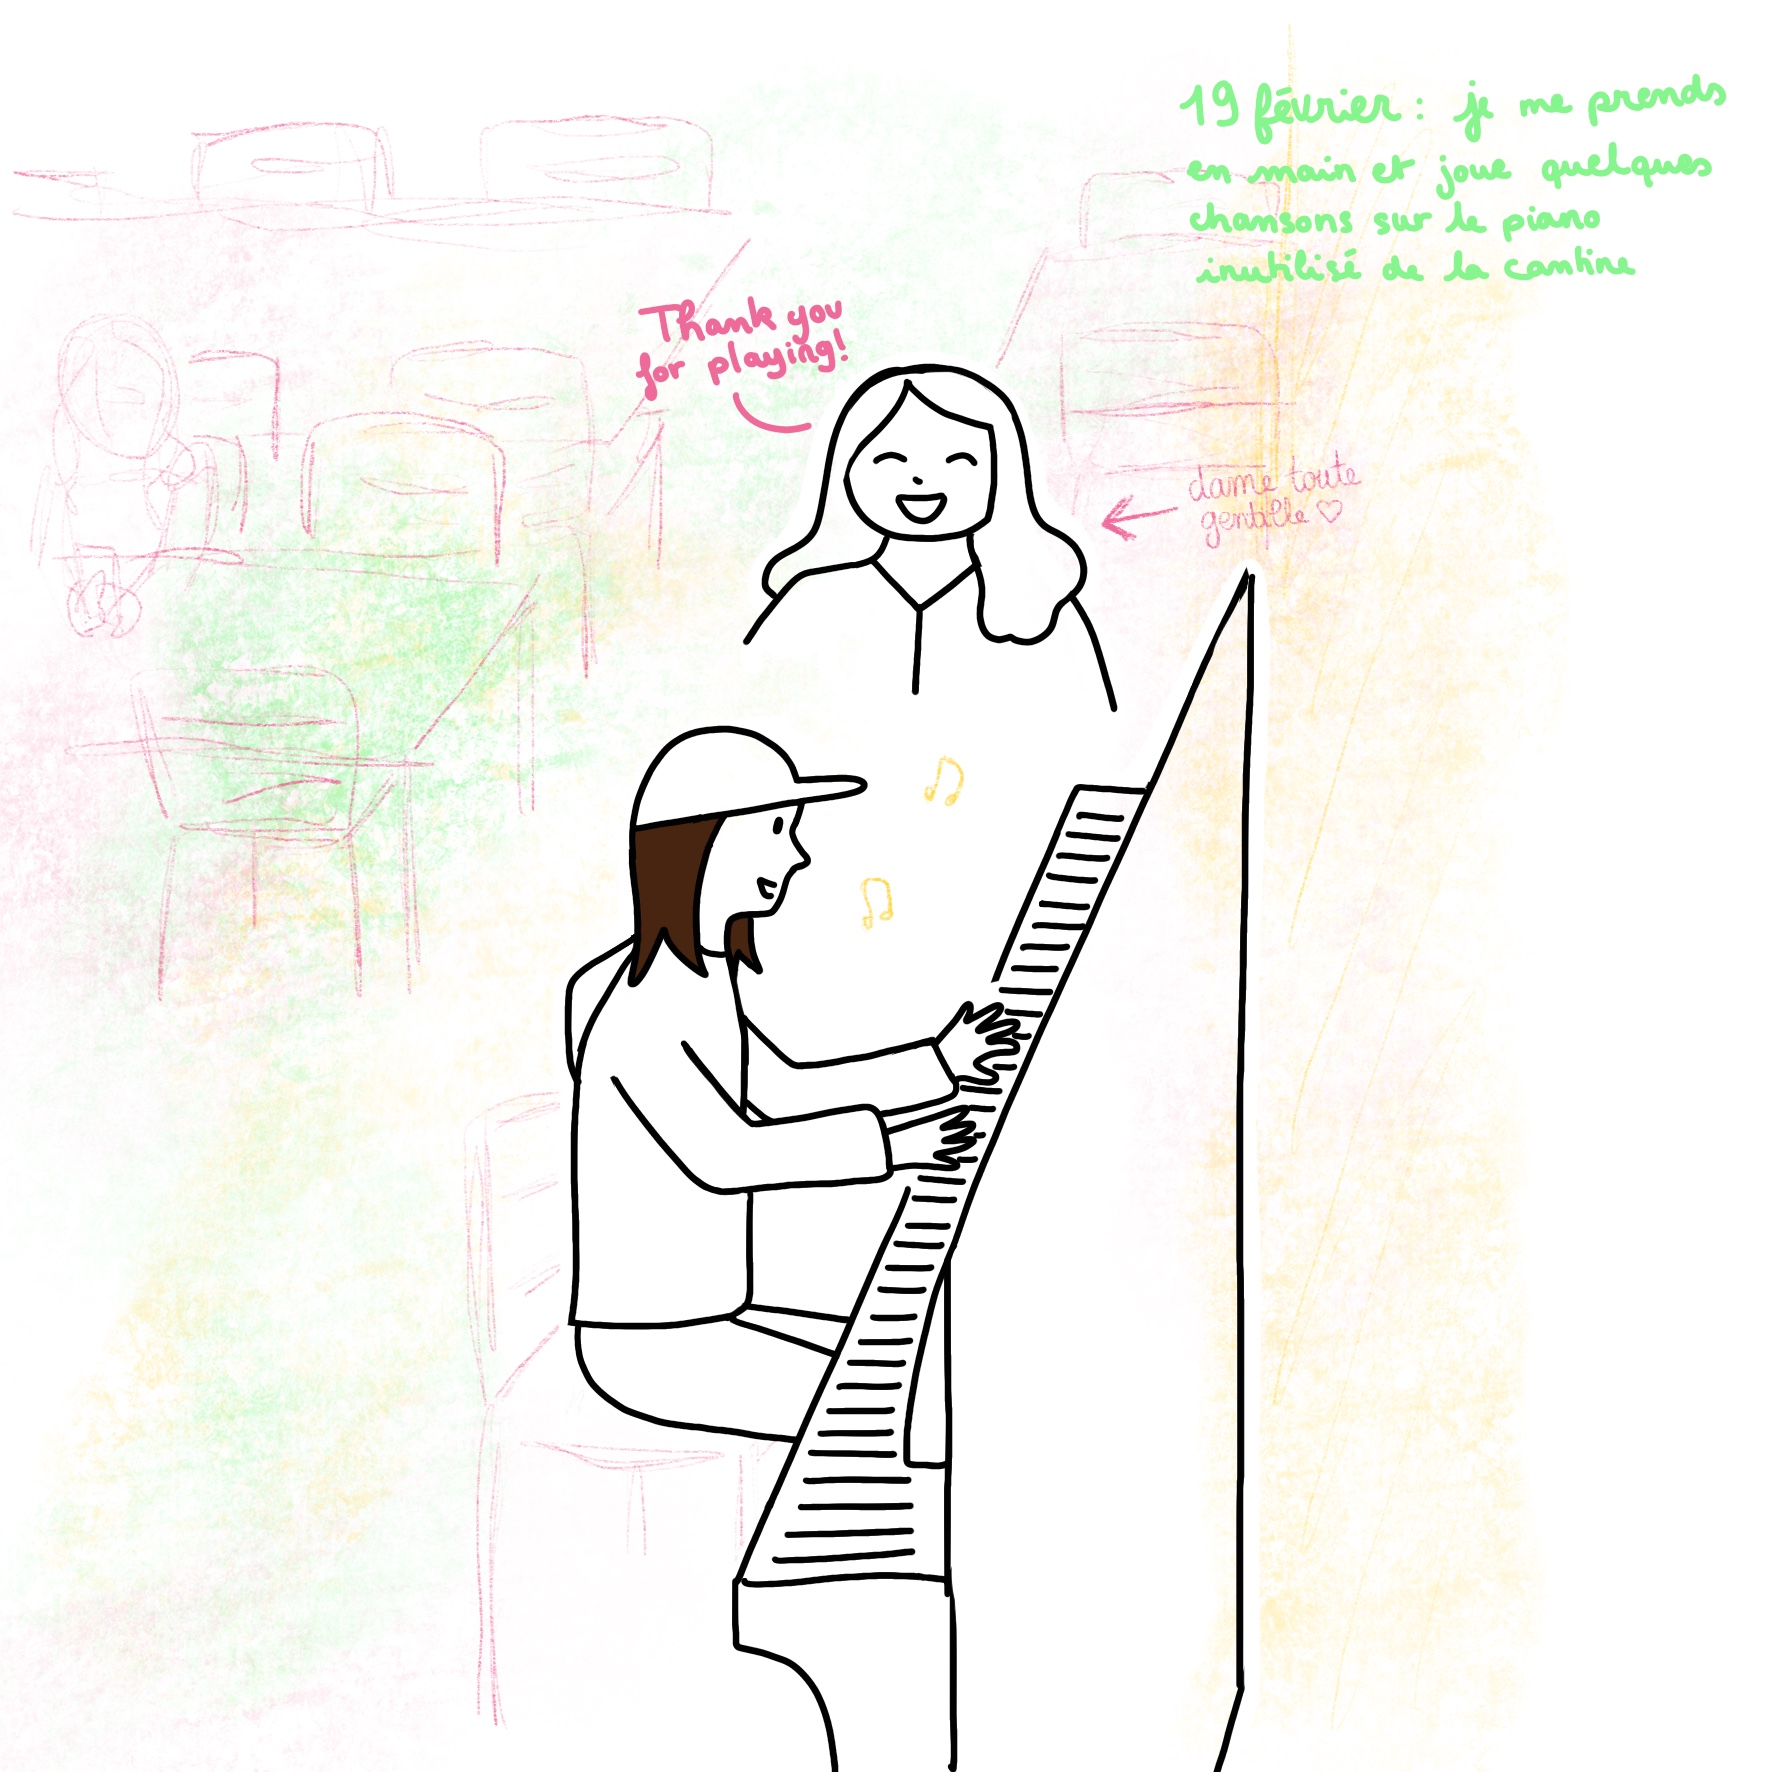 19 février : je me prends
en main et joue quelques
chansons sur le piano
inutilisé de la cantine
Thank you
for playing!
dame toute
gentille ♡